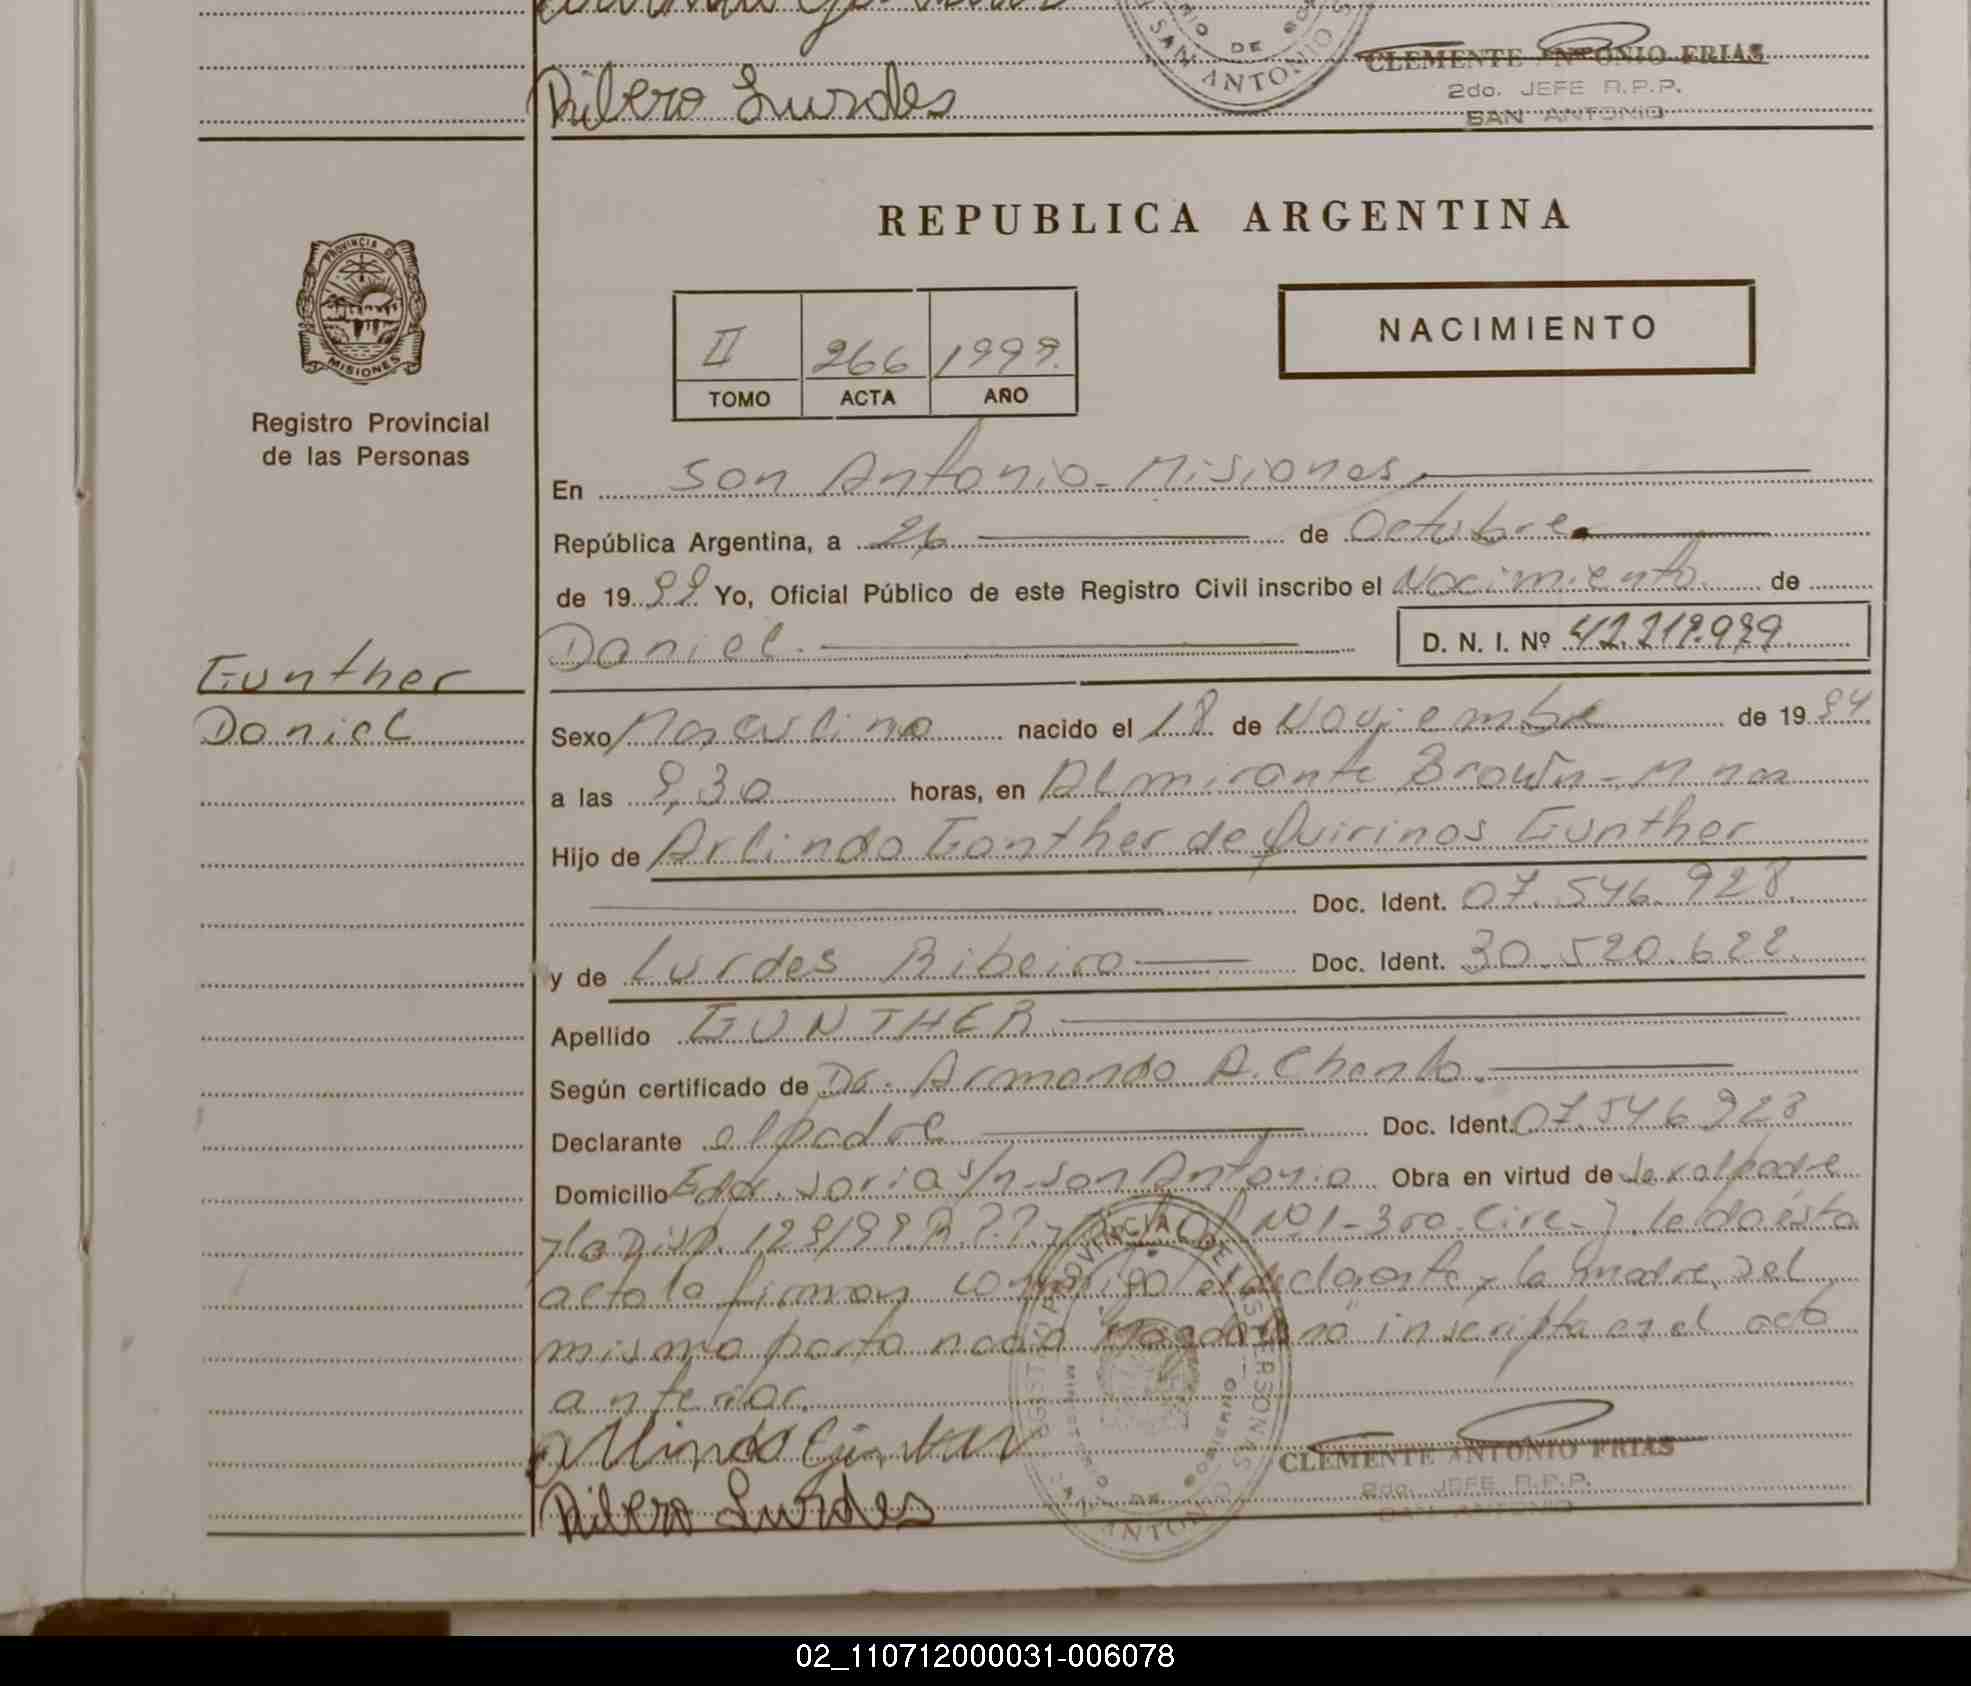 Ribero Lurdes
DE
SAN ANTONIO
CLEMENTE ANTONIO FRIAS
2do. JEFE R.P.P.
SAN ANTONIO
PROVINCIA DE
MISIONES
Registro Provincial
de las Personas
REPUBLICA ARGENTINA
NACIMIENTO
II 266 1999.
TOMO ACTA AÑO
En San Antonio - Misiones
República Argentina, a 26 de Octubre
de 19 99 Yo, Oficial Público de este Registro Civil inscribo el Nacimiento de
Daniel. D. N. I. Nº
Gunther
Daniel
Sexo Masculino nacido el 18 de Noviembre de 19
a las 9,30 horas, en Almirante Brown - Mnes
Hijo de Arlindo Gonther de Quirinos Gunther
Doc. Ident. 07.546.928.
y de Lurdes Ribeiro Doc. Ident. 30.520.622.
Apellido GUNTHER
Según certificado de Dr. Armando A.
Declarante el padre Doc. Ident. 07.546.928
Domicilio Edo. Soria s/n - San Antonio Obra en virtud de ser el padre
y la Disp. 129/99. 3ra. Circ. leida ésta
acta la firman conmigo el declarante y la madre. Del
mismo parto nació inscripta en el acta
anterior.
Arlindo Günther
Ribero Lurdes
CLEMENTE ANTONIO FRIAS
2do. JEFE R.P.P.
SAN ANTONIO
02_110712000031-006078